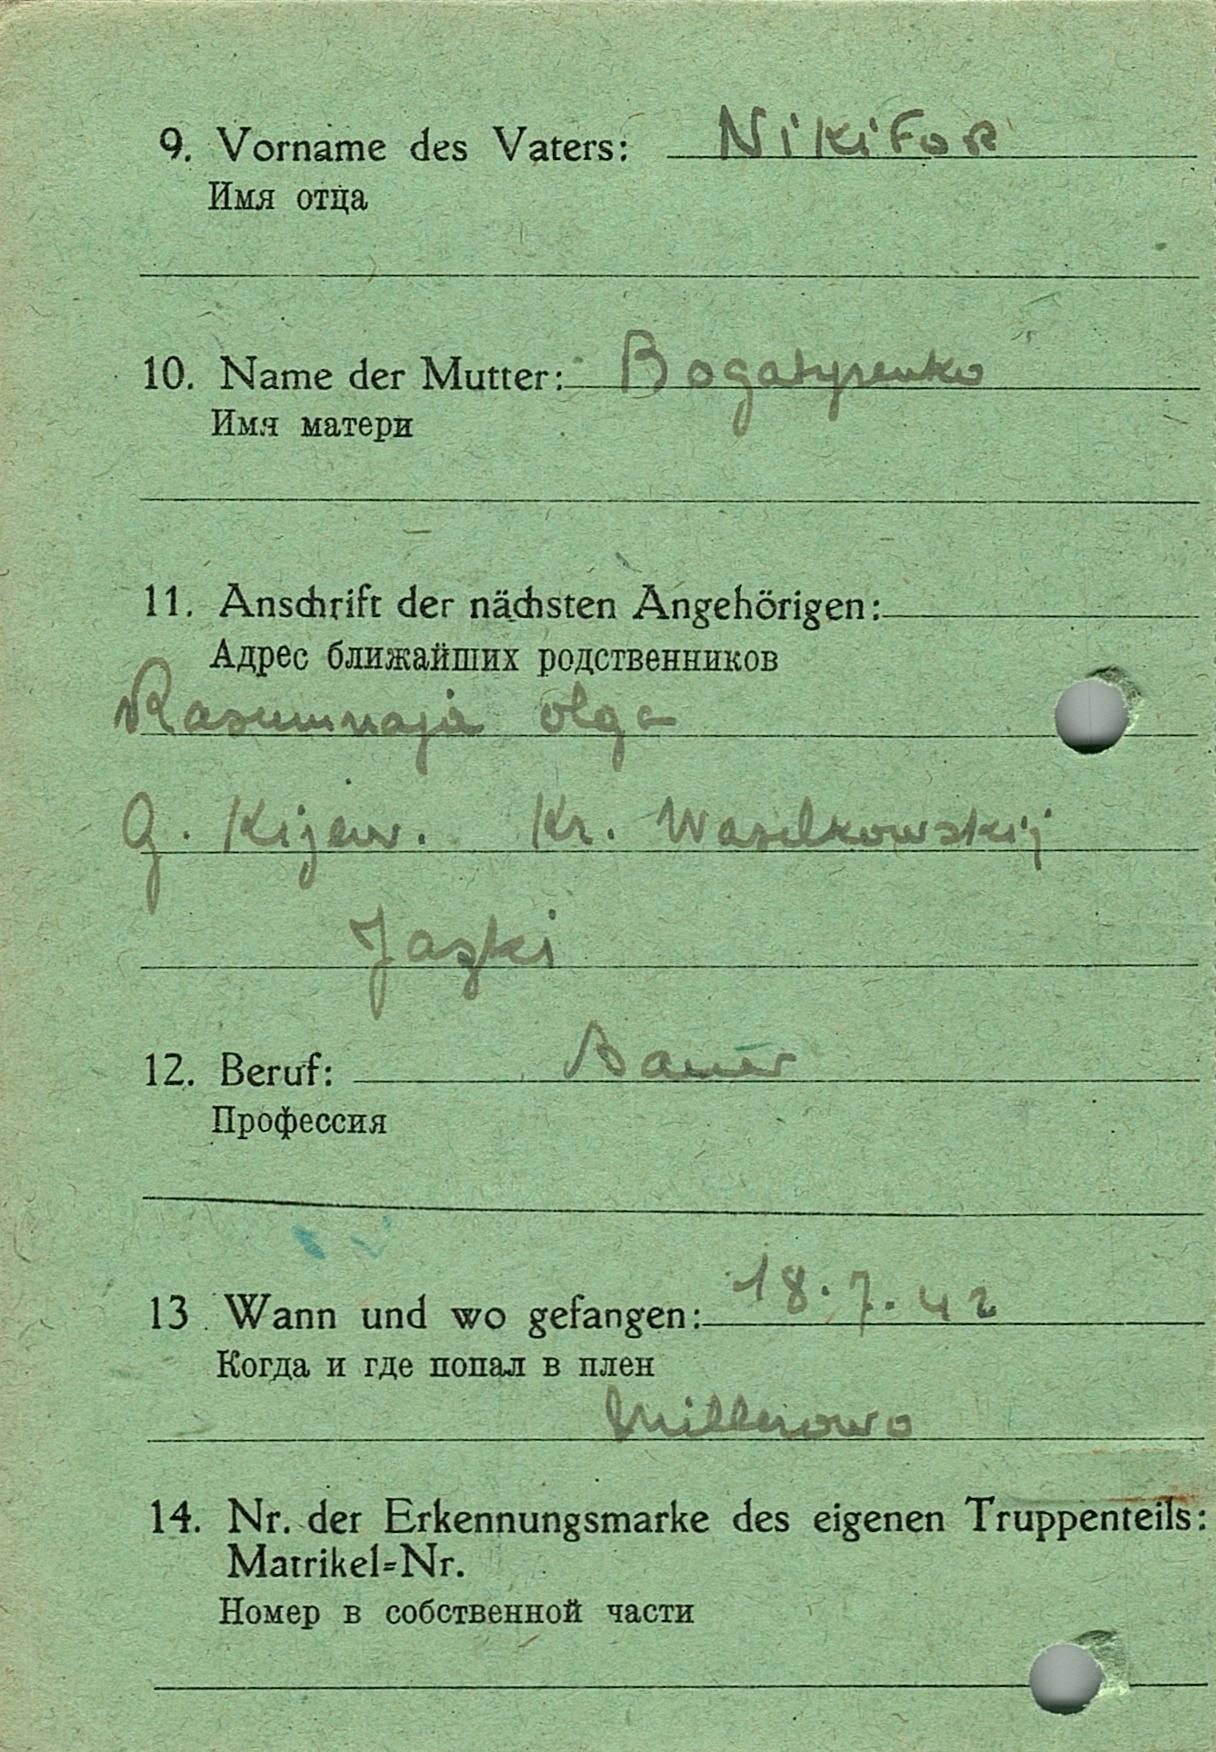 9. Vorname des Vaters: Nikifor
Имя отца
10. Name der Mutter: Bogatyrenko
Имя матери
11. Anschrift der nächsten Angehörigen:
Адрес ближайших родственников
Rasumnaja Olga
G. Kijew. Kr. Wasilkowskij
Jazki
12. Beruf: Bauer
Профессия
13. Wann und wo gefangen: 18.7.42
Когда и где попал в плен
Millerowo
14. Nr. der Erkennungsmarke des eigenen Truppenteils:
Matrikel-Nr.
Номер в собственной части